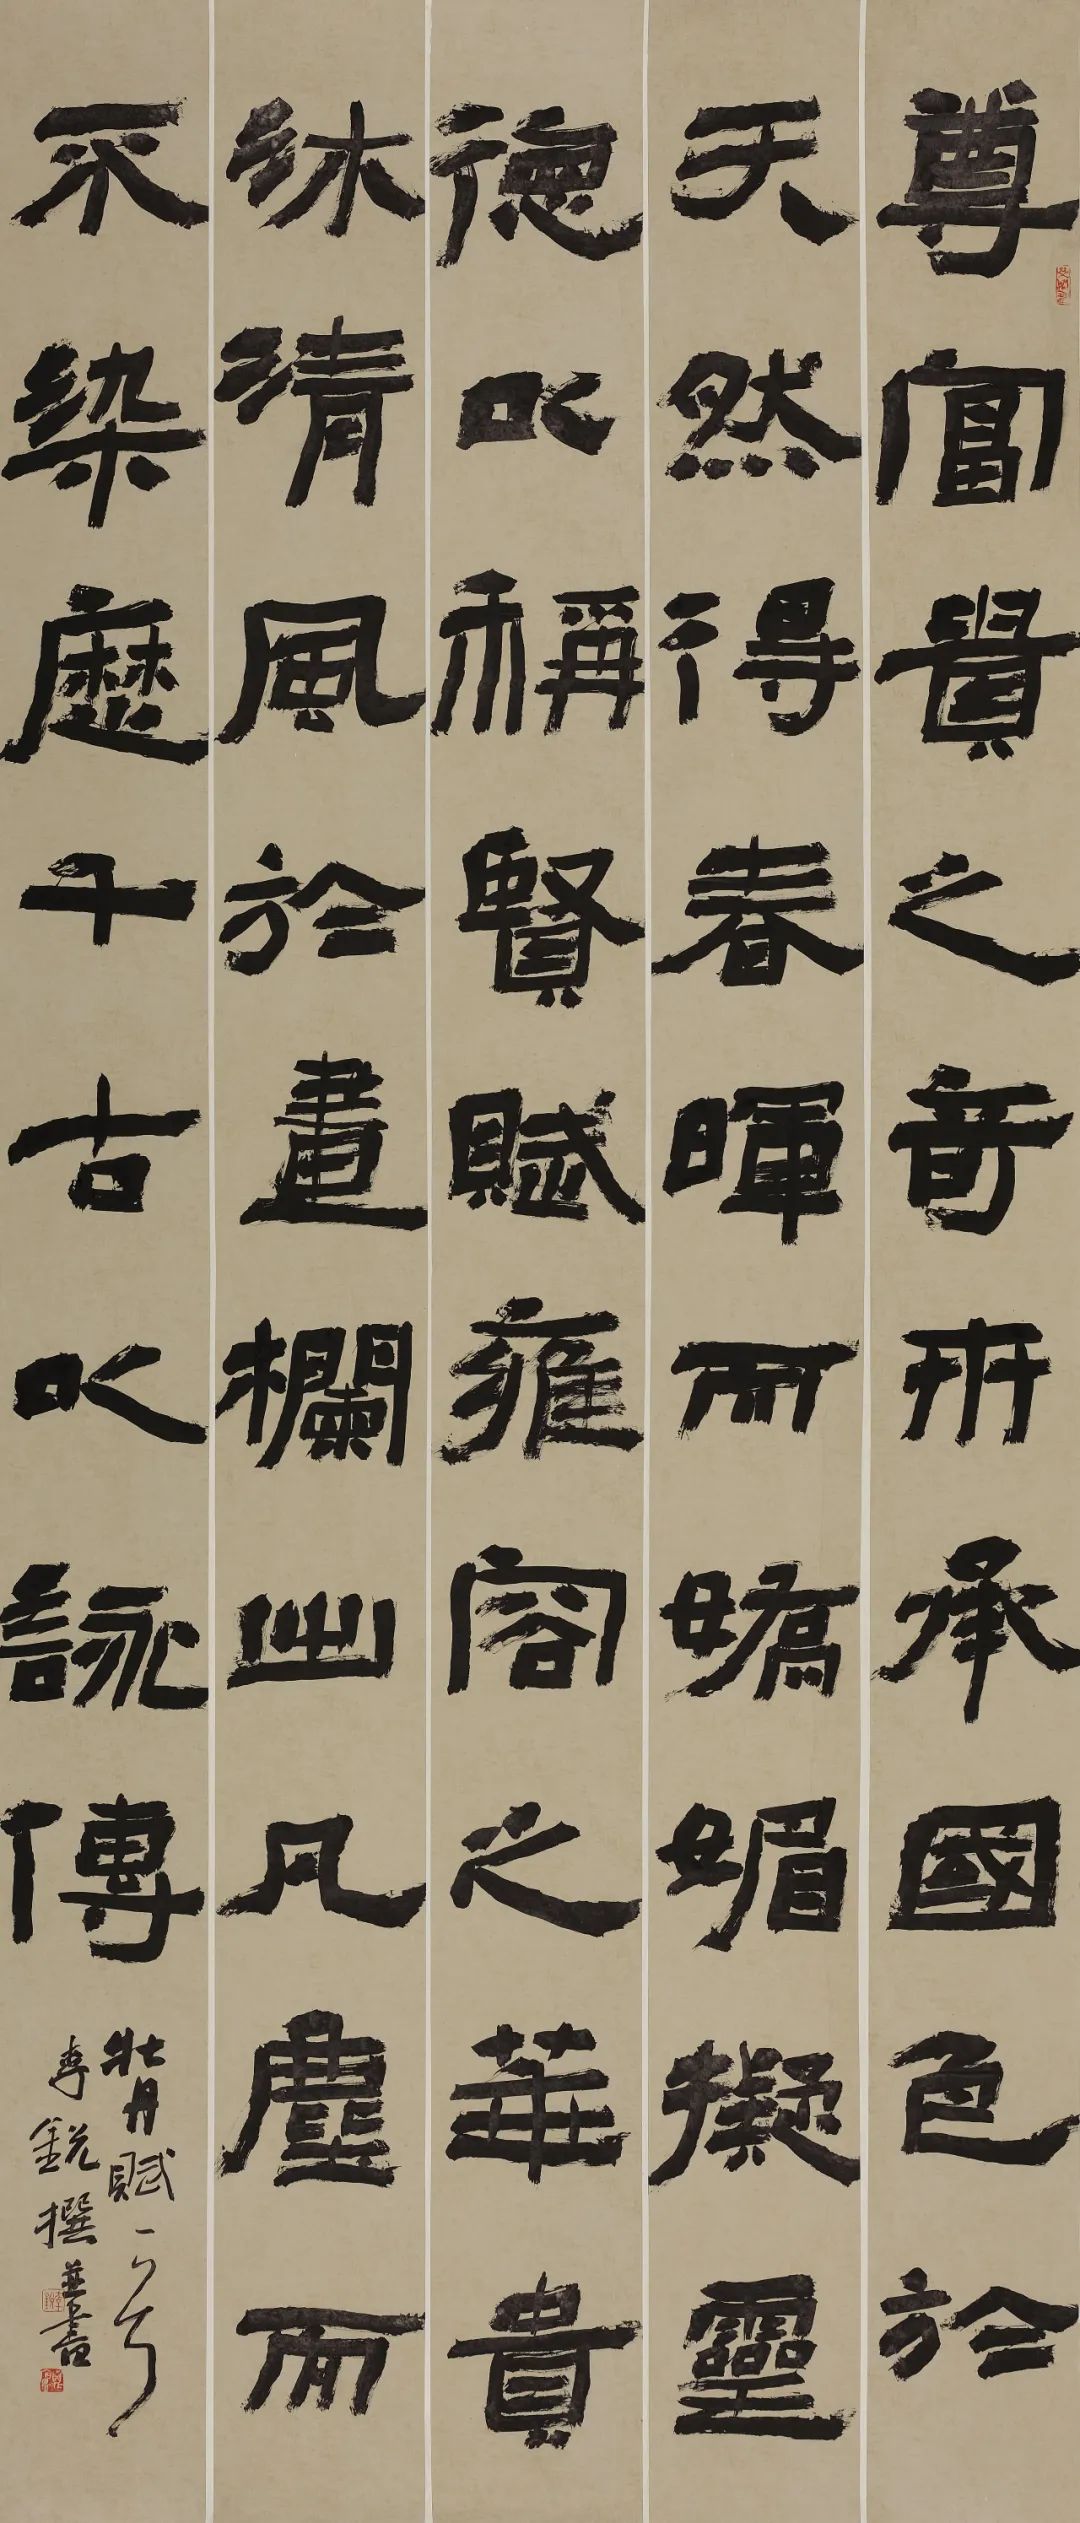 尊富貴之奇冊承國色於
天然得春暉而嬌媚擬靈
德以稱賢賦雍容之華貴
沐清風於畫欄出凡塵而
不染歷千古以詠傳
牡丹賦一
李銳撰並書